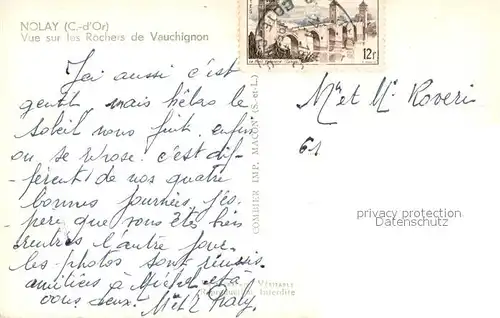 NOLAY (C.-d'Or)
Vue sur les Rochers de Vauchignon
12f
Ici aussi c'est
gentil, mais hélas le
soleil nous fuit, enfin
on se repose. c'est dif-
-férent de nos quatre
bonnes journées, j'es-
-père que vous êtes bien
rentrés l'autre jour.
les photos sont réussis
amitiés à Michel et à
vous deux.
Mr et Mr Roveri
61
COMBIER IMP. MACON (S.-et-L.)
privacy protection
Datenschutz
Interdite